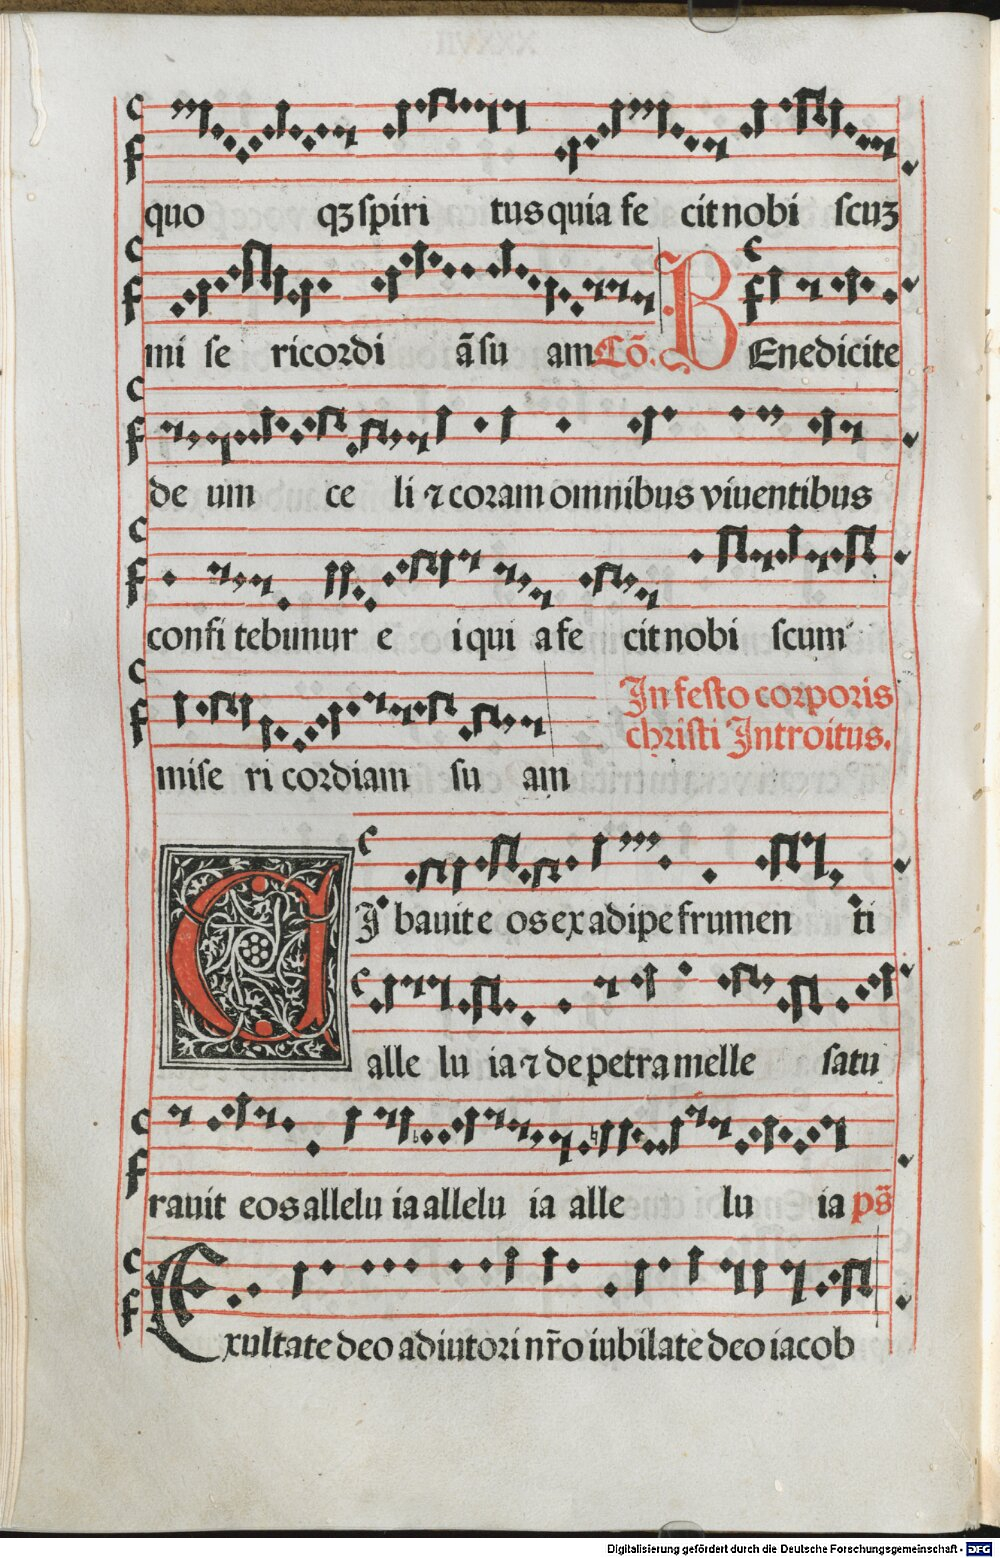 quo qꝫ spiri tus quia fe cit nobi scuꝫ
mi se ricordi ā su am Cō. BEnedicite
de um ce li ⁊ coram omnibus viuentibus
confi tebunur e i qui a fe cit nobi scum
In festo corporis
christi Introitus.
mise ri cordiam su am
CI bauit e os ex adipe frumen ti
alle lu ia ⁊ de petra melle satu
rauit eos allelu ia allelu ia alle lu ia ps̄
Exultate deo adiutori nr̄o iubilate deo iacob
Digitalisierung gefördert durch die Deutsche Forschungsgemeinschaft - DFG